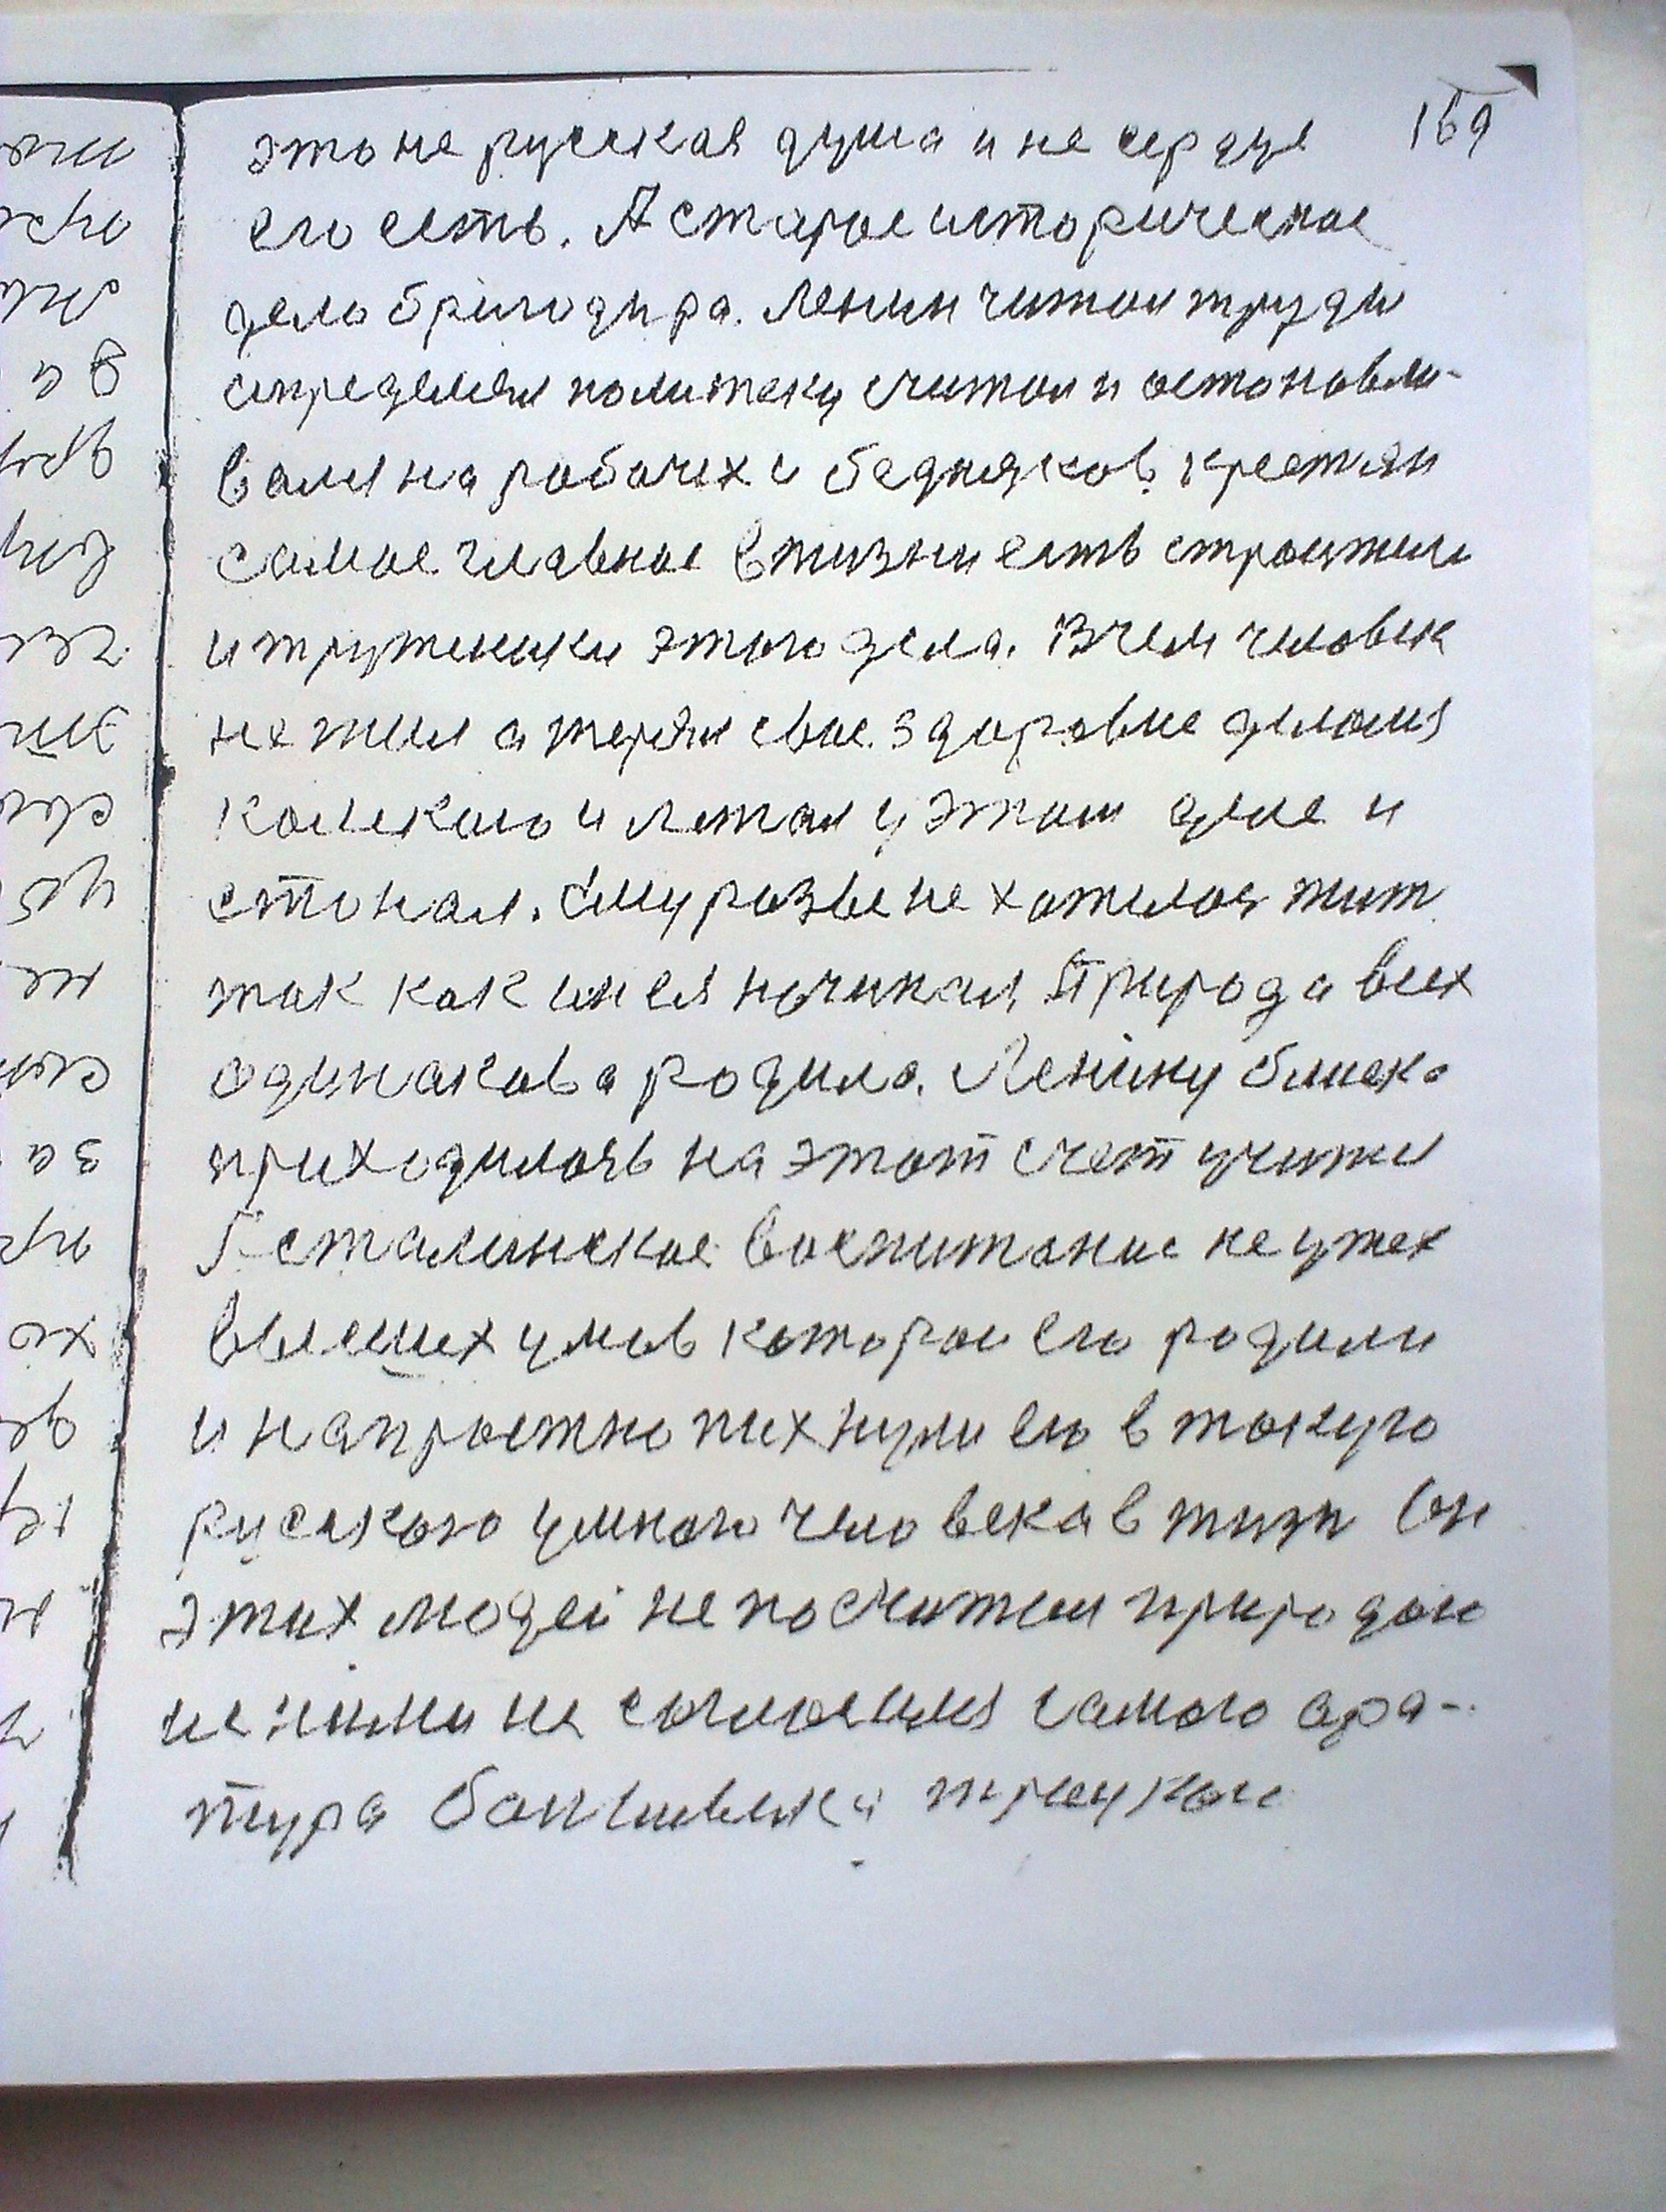 169
это не руская душа и не сердце
его есть. А старое историческое
дело бригодира. Ленин читал труды
определял политеку считал и остоновли-
вался на робочех и бедняков крестян
самое главное в жизни есть строители
и труженики этого дела. В чем человек
не жил а терял свое здоровие делался
калекаю и лежал у этом деле и
стонал. Ему разве не хателось жит
так как инея начинал, Природа всех
одинакава родила. Ленину близка
приходилось на этот счет учится
Г сталинское воспитание не у тех
высших умов которои его родили
и напростно пихнули его в такую
рускаго умного человека в жизн Он
этих людей не посчитал природою
и с ними не согласился самого ора-
тура большевика